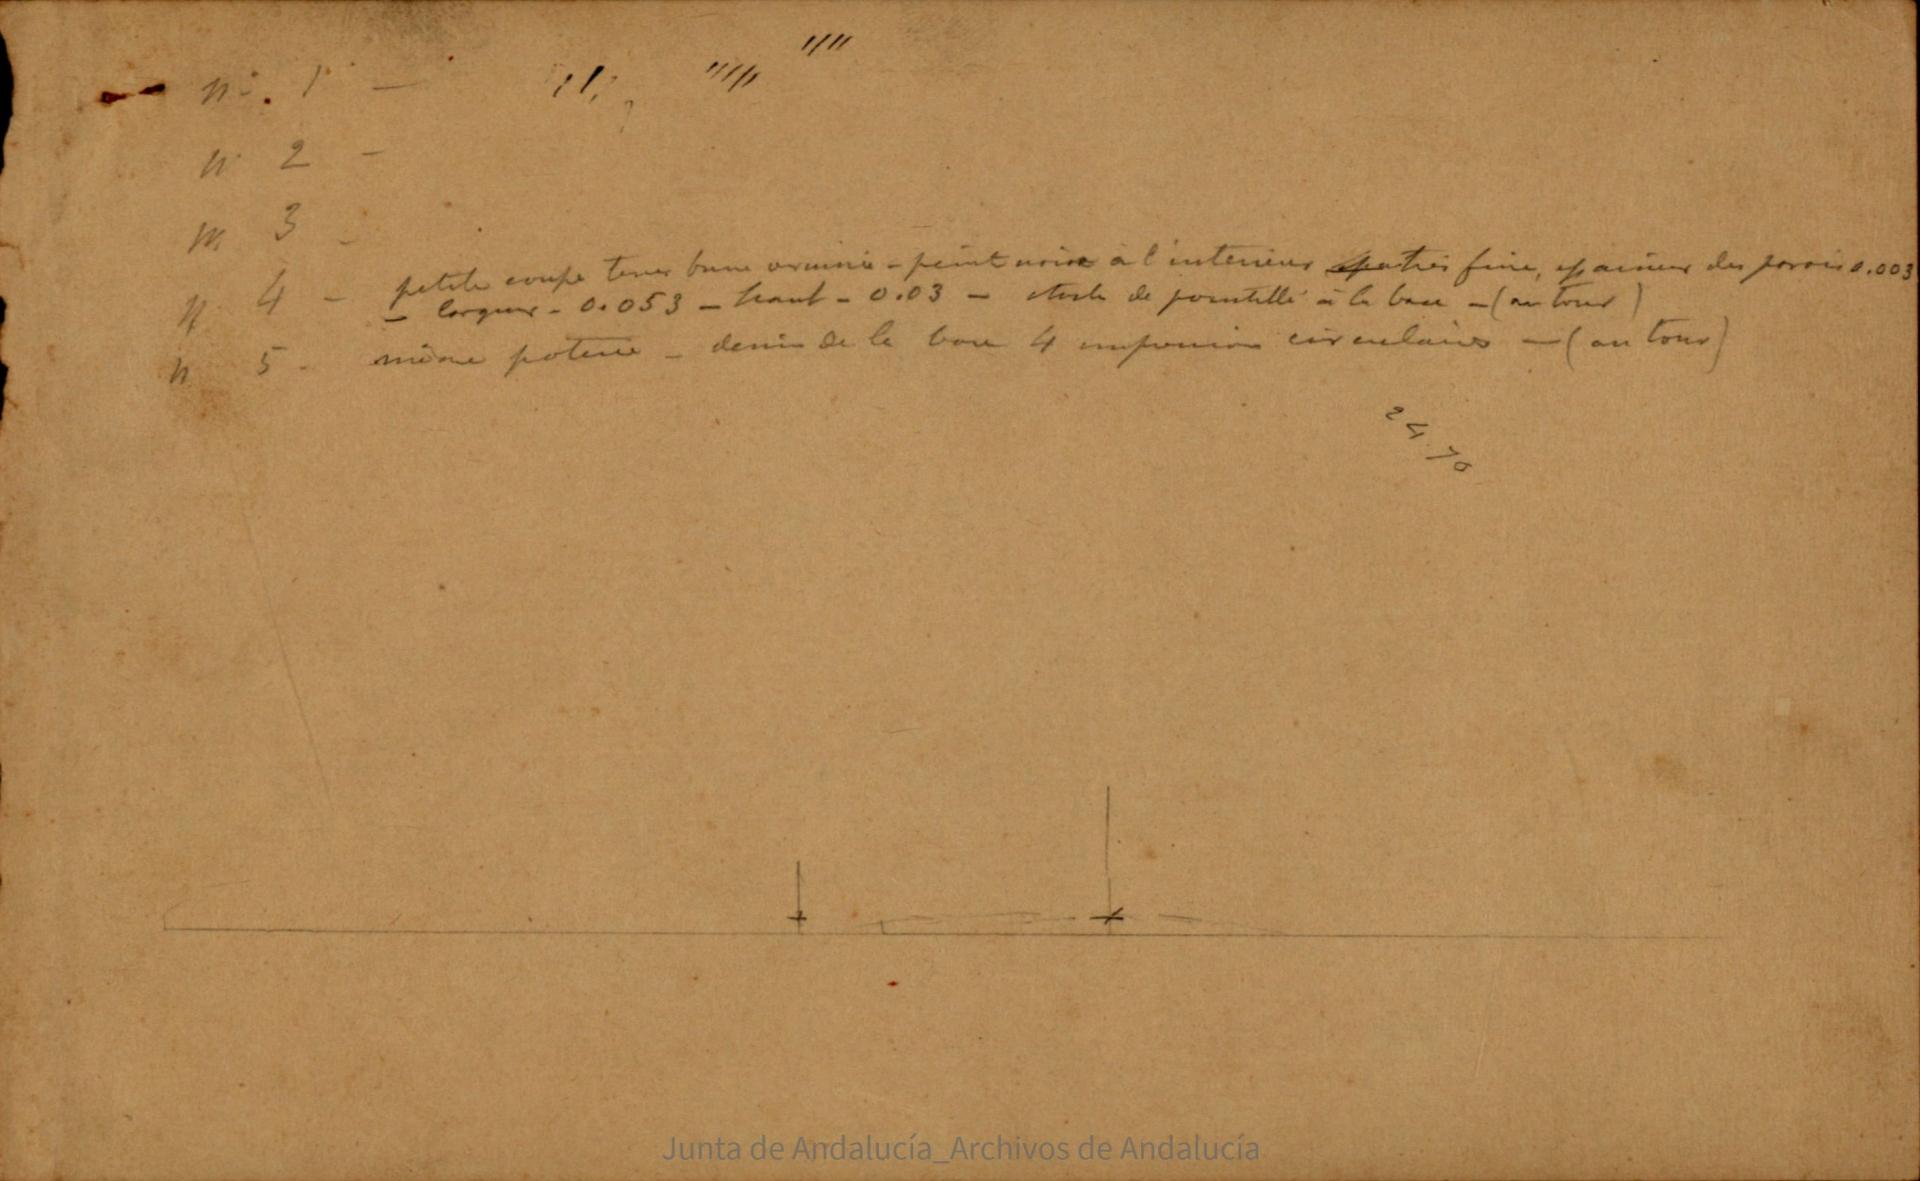 n° 1 —
n 2 —
n 3 -
n 4 — petite coupe terre brune - peint noire à l'interieur très fine, epaisseur des parois 0.003
— largeur - 0.053 — haut - 0.03 — de pointillé à la base — (au tour)
n 5 - même poterie — de la base 4 impressions circulaires — (au tour)
Junta de Andalucía_Archivos de Andalucía